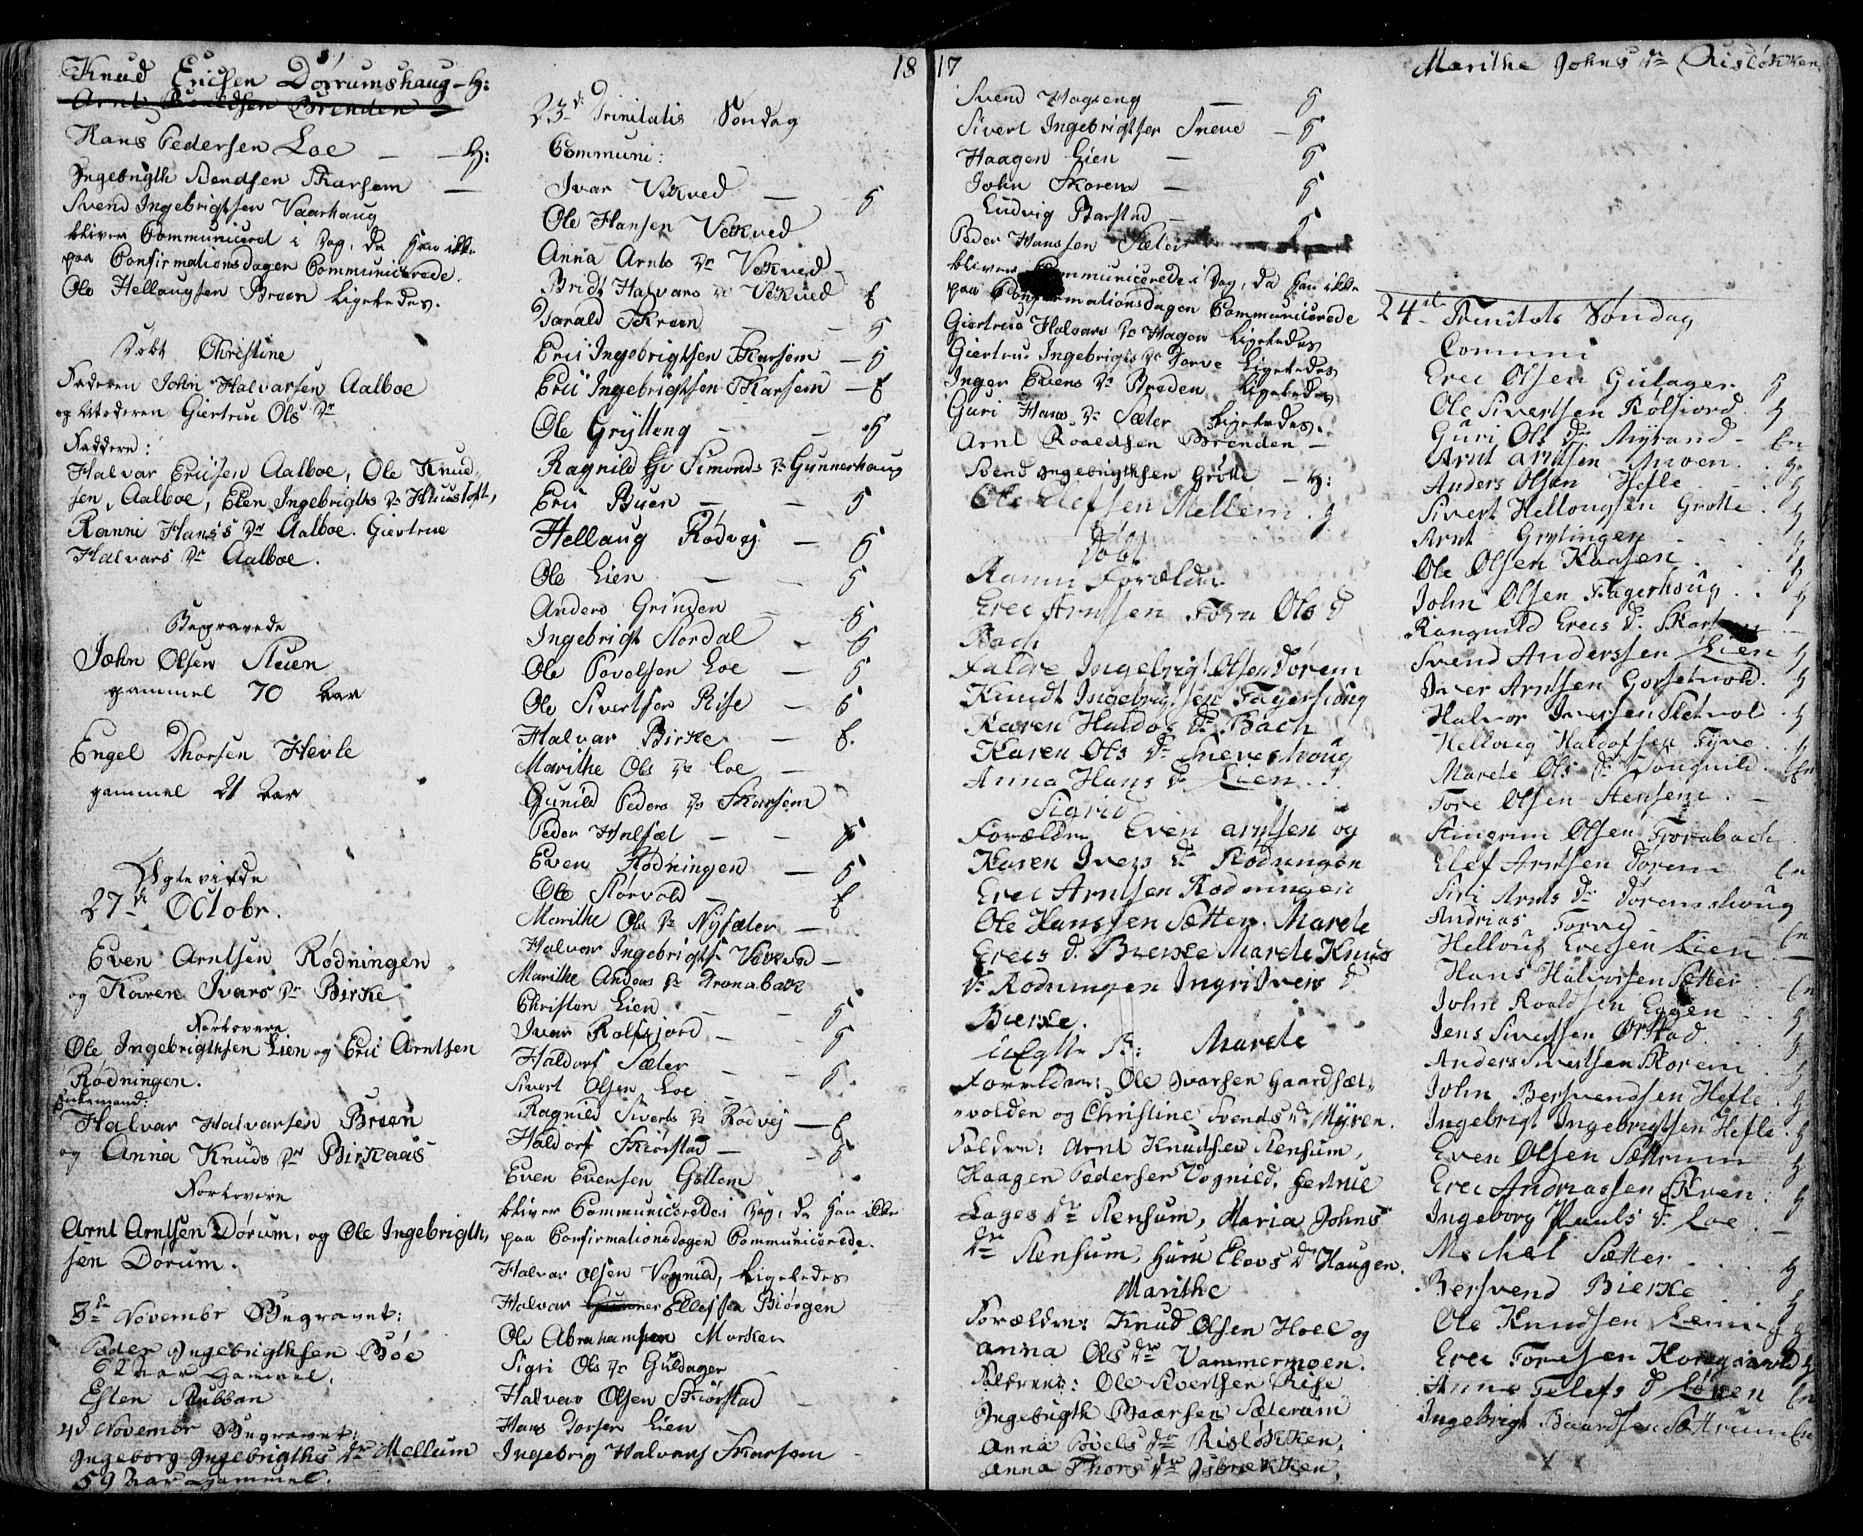 Knud Ericsen Dørrumshaug - H:
Arnt Roaldsen Brenden
Hans Pedersen Loe - - H:
Ingebrigth Svendsen Skarsem -
Svend Ingebrigtsen Vaarhaug
bliver Communiceret i Dag, da han ikke
paa Confirmationsdagen Communicerede.
Ole Hellaugsen Broen Ligeledes.
Døbt Christine
Faderen John Halvarsen Aalboe
og Moderen Giertru Ols Dr
Faddere:
Halvar Ericsen Aalboe, Ole Knud-
sen, Aalboe, Elen Ingebrigths Dr
Ranni Hans's Dr Aalboe. Giertrue
Halvars Dr Aalboe.
Begravede
John Olsen Stuen
gammel 70 Aar
Engel Thorsen Hevle
gammel 21 Aar
Ægteviede
27de Octobr.
Even Arntsen Rødningen
og Karen Ivars Dr Birke
Forlovere
Ole Ingebrigthsen Lien og Eric Arntsen
Rødningen.
Enkemand:
Halvar Halvarsen Broen
og Anna Knuds Dr Birkaas
Forlovere
Arnt Arntsen Dørum, og Ole Ingebrigth,
sen Dørum.
3de Novembr Begravet:
Peder Ingebrigthsen Böe
62 Aar Gammel.
Esten Stubban
4d Novembr Begravet:
Ingeborg Ingebrigths Dr Mellum
59 Aar Gammel.
18
23de Trinitatis Søndag
Communi:
Ivar Vekved - - H
Ole Hansen Vekved
Anna Arnts Dr Vekved -
Bridt Halvars Dr Vekved E
Harald Skroen - - H
Eric Ingebrigtsen Skarsem - H
Eric Ingebrigtsen Skarsem - E
Ole Grÿtteng - - H
Ragnild Simonds Dr Gunnerhaug
Eric Buen - - H
Hellaug Rødvej - H
Ole Lien - - H
Anders Grinden - H
Ingebrigt Stordal - H
Ole Povelsen Loe - H
Ole Sivertsen Rise - H
Halvar Birke - E.
Marithe Ols Dr Loe -
Gunild Peders Dr Skarsem
Peder Hulsæt - - H
Even Rødningen - H
Ole Storvold - E
Marithe Ols Dr Nysæter -
Halvar Ingebrigts Vekved -
Marithe Andeas Dr Dronabak
Christen Lien - H
Ivar Rolfsjord - - H
Haldorf Sæter - -
Sivert Olsen Loe - H.
Ragnild Siverts Dr Rødvej - E
Haldorf Skiørstad - - H
Even Evensen Gottem
bliver Communiceredei Dag, da han ikke
paa Confirmationsdagen Communicerede.
Halvar Olsen Vognild, Ligeledes
Halvar Ellefsen Biörgen
Ole Abrahamsen Morken
Sigri Ols Dr Guldager -
Halvar Olsen Skiørstad -
Hans Torsen Lien
Ingebrig Halvars Skarsem -
17
Svend Hagseng - H
Sivert Ingebrigtsen Sneve - H
Haagen Lien - H
John Skorem - H
Ludvig Barstad - H
Peder Hanssen Sæter
bliver Communicerede i Dag, da han ikke
paa Confirmationsdagen Communicerede
Giertrue Halvars Dr Hagen Ligeledes
Giertrue Ingebrigts Dr Torve Ligeledes
Inger Evens Dr Breden Ligeledes
Guri Hans Dr Sæter Ligeledes.
Arnt Roaldsen Brenden -
Svend Ingebrigthsen Grötte - H:
Ole Elefsen Mellem . H
Døbt
Ranni Forældre
Erec Arntsen Ols D
Bach
Faldre Ingebrigt Olsen Dørem
Knudt Ingebrigtsen Fagerhoug
Karen Haldos Dr Bach
Karen Ols Dr Sneveshoug
Anna Hans Dr Lien
Sigrid
Forældre Even Arntsen og
Karen Ivers Dr Rodningen
Erec Arntsen Rodningen
Ole Hanssen Sætter. Marete
Erecs D. Bierke Marete Knus
Dr Rodningen Ingri Ivers D
Bierke.
uEgte B: Marete
Forældre: Ole Ivarsen Gaardsæt,
-volden og Christine Svends Dr Myren.
Faldre: Arnt Knudtsen Stensum,
Haagen Pedersen Vognild. Gertrue
Lages Dr Stensum, Maria Johns
Dr Stensum, Guru Elovs Dr Haugen.
Marithe
Forældre: Knud Olsen Hoel og
Anna Ols Dr Vammermoen.
Faldrene: Ole Sivertsen Rise
Ingebrigth Baarsen Sæterum
Anna Povels Dr Risløkken,
Anna Thors Dr Isbrækken,
Marithe Johns Dr Risløkken
24de Trinitats Søndag
Comuni
Erec Olsen Gulager H
Ole Sivertsen Rolfsiord. H
Guri Ols Dr Myrand - En
Arnt Arntsen Moen . H
Anders Olsen Hefle - - H
Sivert Hellougsen Grotte . H
Arnt Grytingen . . . H
Ole Olsen Kaasen . . . H
John Olsen Fagerhoug . . H
Rangnild Erecs Dr Skarsem -
Svend Anderssen Lien H
Iver Arntsen Gorsetvold. H
Halvor Iversen Sletvold . H
Hellovg Haldorsen . H
Marete Ols Dr Vongnild. En
Tore Olsen Stensem . -
Steingrim Olsen Tronabach .
Elef Arntsen Dørem . En
Siri Arnts Dr Dørems houg
Andrias Torve . En
Helloug Erecsen Lien -
Hans Halvorsen Sætter . - En
John Roaldsen Eggen . . H
Jens Siversen Ørstad . . H
Anders Sivertsen Skorem . H
John Bersvendsen Hefle . H
Ingebrigt Ingebrigtsen Hefle . H
Even Olsen Sættrum H
Erec Andriassen Kven : H
Ingeborg Pauls Dr Loe . -
Mechel Sætter . . . H
Bersvend Bierke . H
Ole Knudsen H
Erec Toresen H
Anne D Løken En
Ingebrigt Baardsen Sættrum En